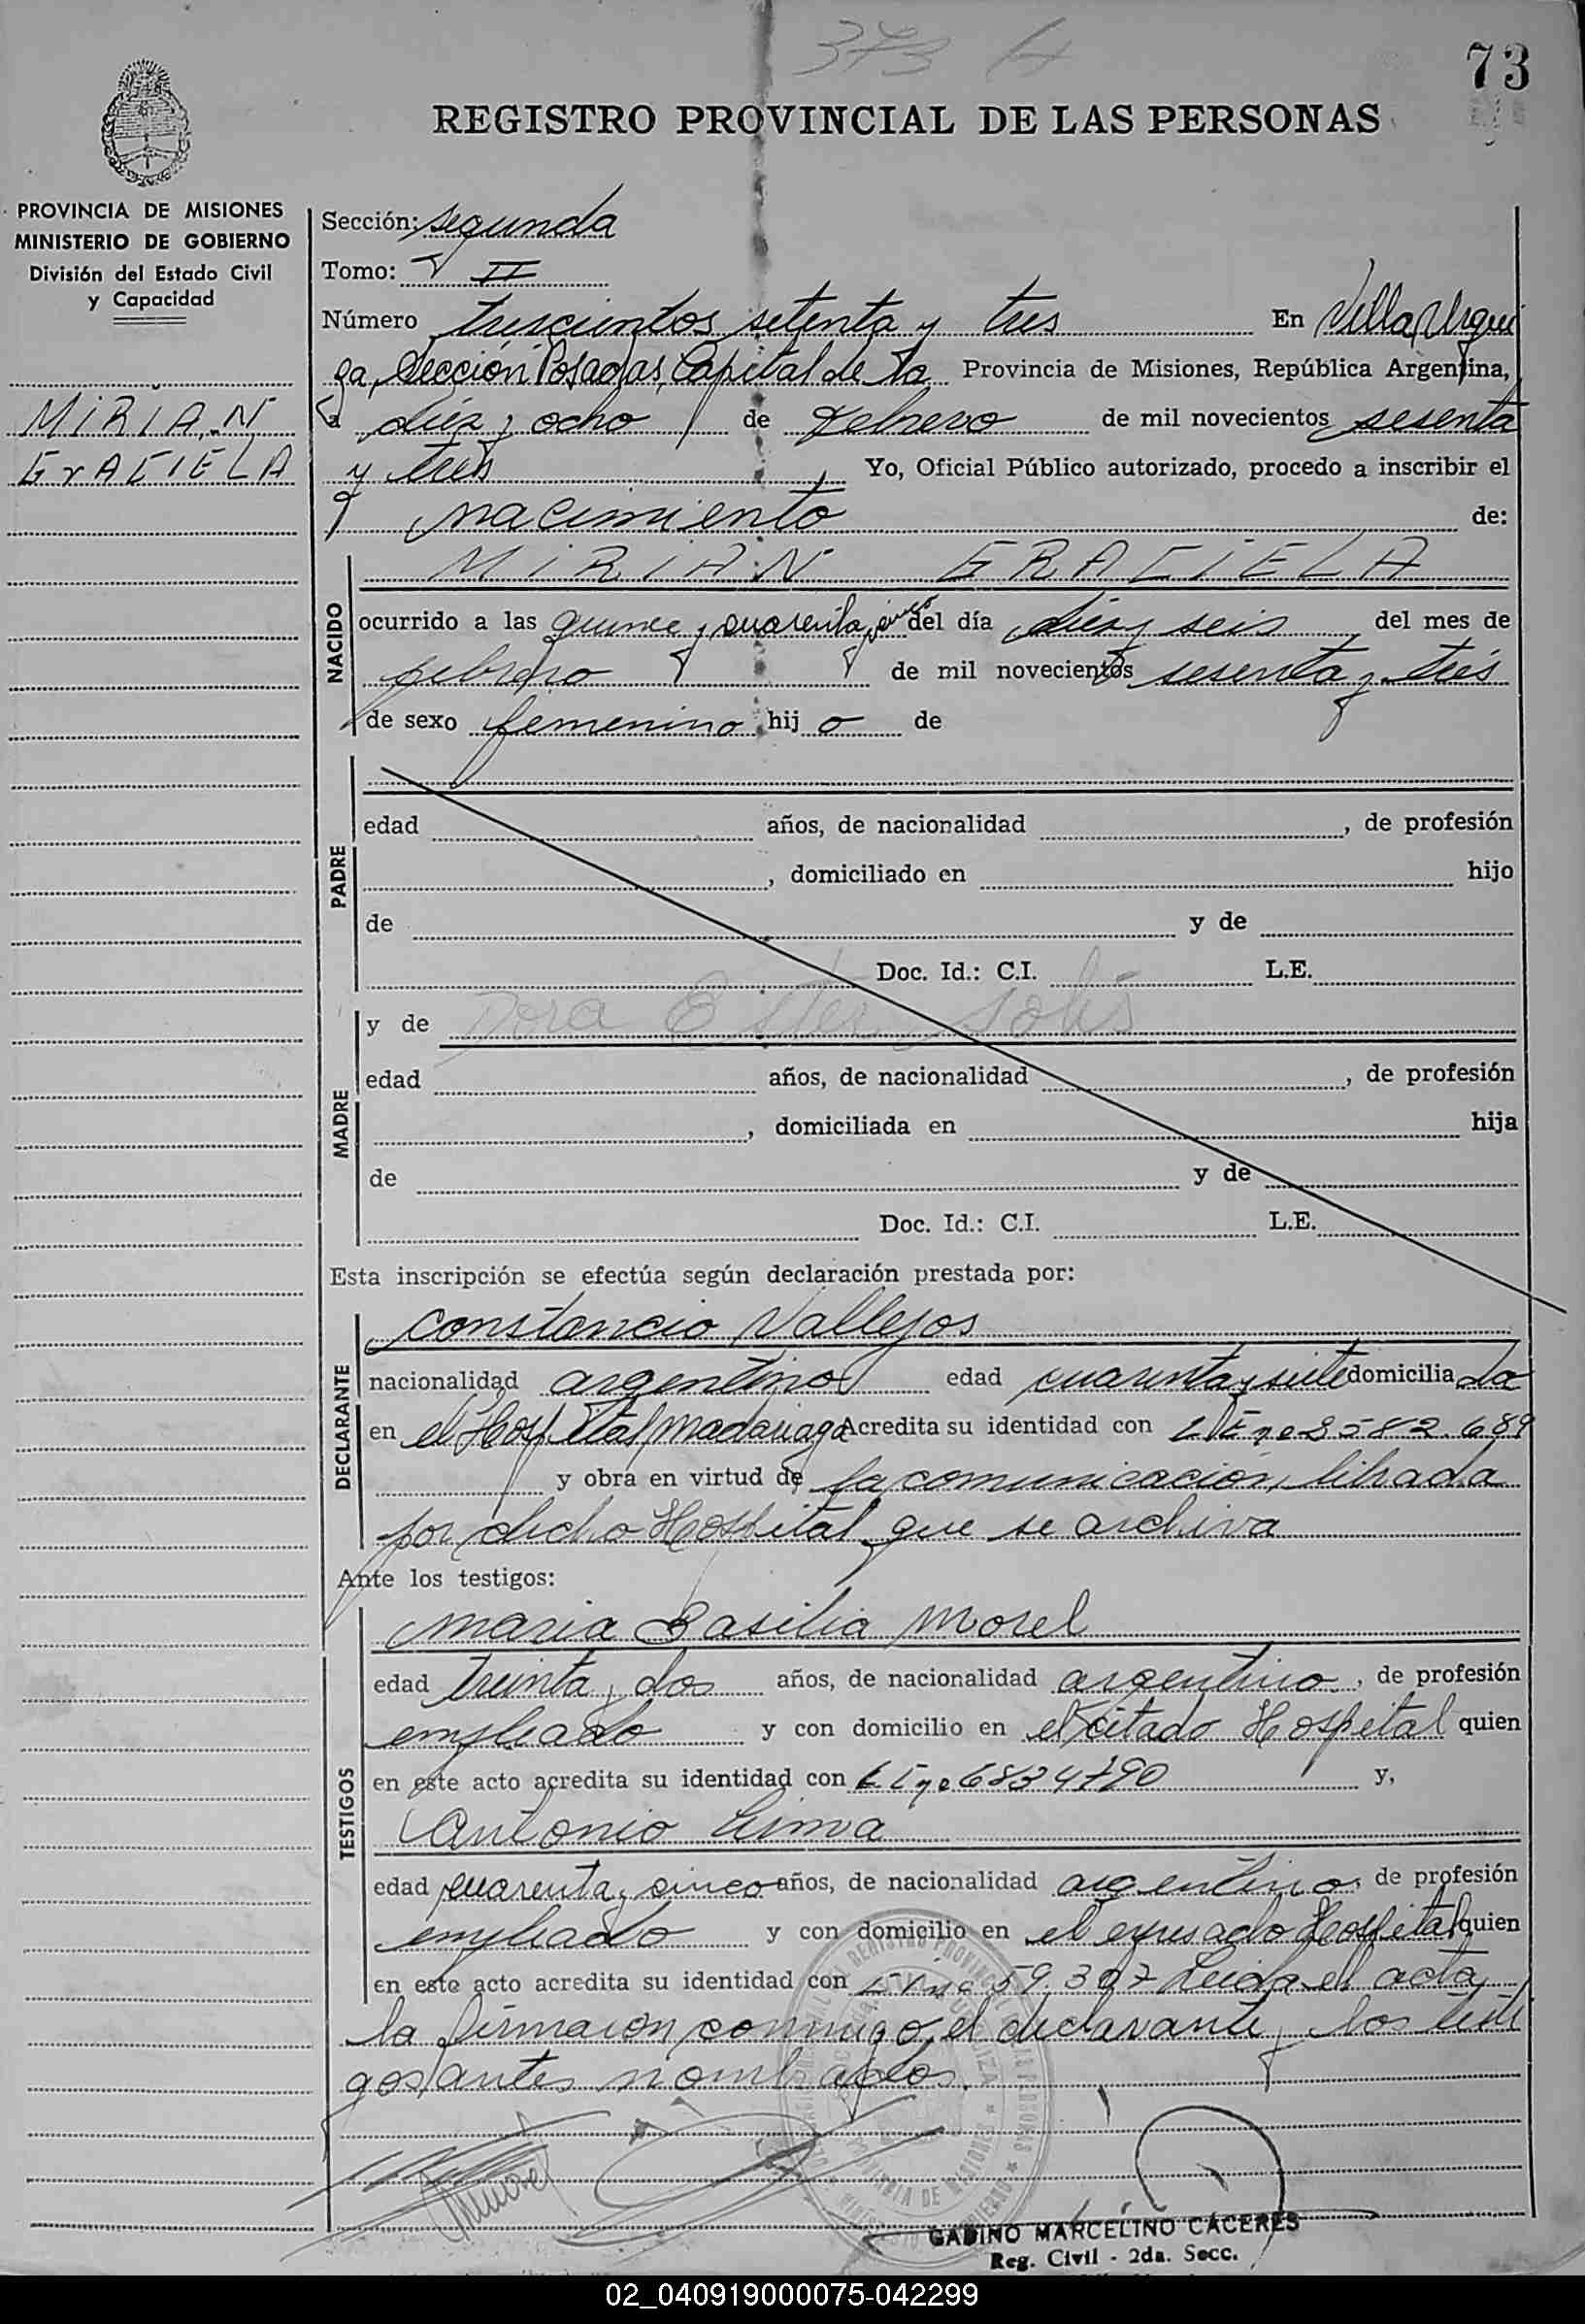 373 H
73
REGISTRO PROVINCIAL DE LAS PERSONAS
PROVINCIA DE MISIONES
MINISTERIO DE GOBIERNO
División del Estado Civil
y Capacidad
MIRIAN
GrACIELA
Sección: segunda
Tomo: II
Número trescientos setenta y tres En Villa Urqui
za, Sección Posadas, Capital de la Provincia de Misiones, República Argentina,
a diez y ocho de Febrero de mil novecientos sesenta
y tres Yo, Oficial Público autorizado, procedo a inscribir el
nacimiento de:
NACIDO
MIRIAN GRACIELA
ocurrido a las quince y cuarenta y cinco del día diez y seis del mes de
febrero de mil novecientos sesenta y tres
de sexo femenino hij o de
PADRE
edad años, de nacionalidad , de profesión
, domiciliado en hijo
de y de
Doc. Id.: C.I. L.E.
MADRE
y de Dora Ester Solis
edad años, de nacionalidad , de profesión
, domiciliada en hija
de y de
Doc. Id.: C.I. L.E.
Esta inscripción se efectúa según declaración prestada por:
DECLARANTE
Constancio Vallejos
nacionalidad argentino edad cuarenta y siete domicilia da
en el Hospital Madariaga Acredita su identidad con L E nº 2582.689
y obra en virtud de la comunicación, librada
por dicho Hospital que se archiva
Ante los testigos:
TESTIGOS
Maria Basilia Morel
edad treinta y dos años, de nacionalidad argentino , de profesión
empleado y con domicilio en el citado Hospital quien
en este acto acredita su identidad con L E nº 6834790 y,
Antonio Lima
edad cuarenta y cinco años, de nacionalidad argentino, de profesión
empleado y con domicilio en el expresado Hospital quien
en este acto acredita su identidad con 59.307 Leida el acta
la firmaron conmigo, el declarante y los testi
gos antes nombrados.
GABINO MARCELINO CACERES
Reg. Civil - 2da. Secc.
02_040919000075-042299